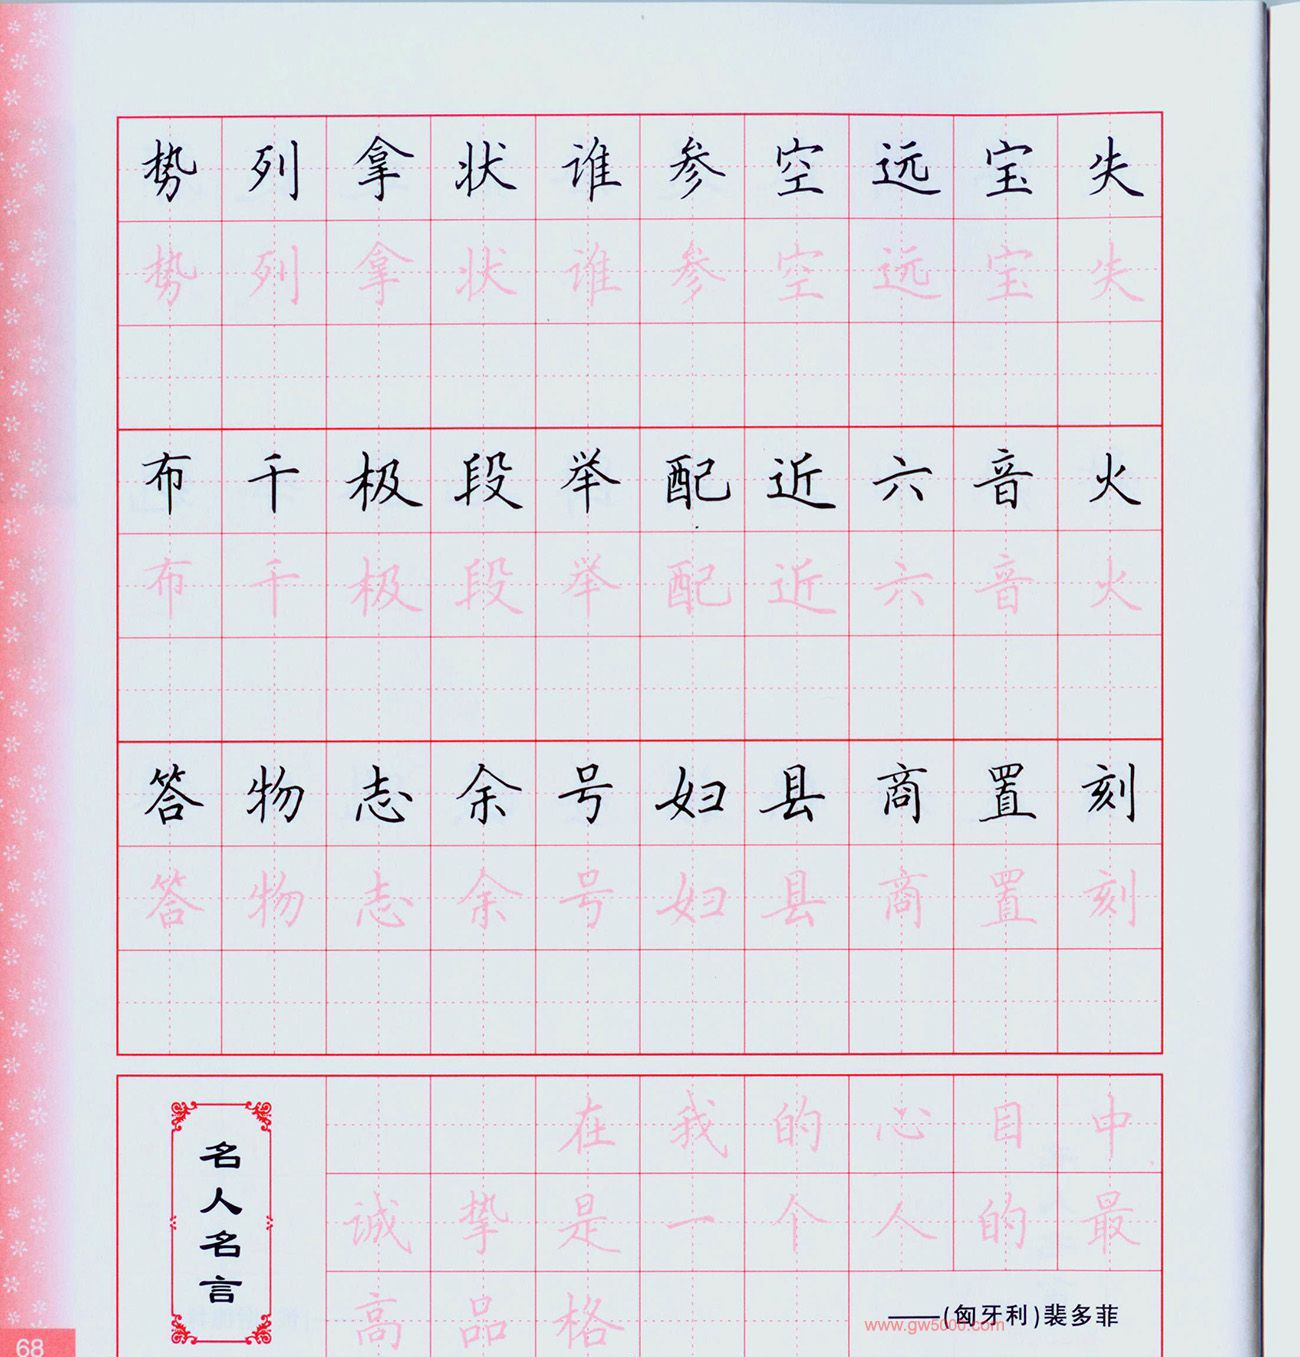 势列拿状谁参空远宝失
势列拿状谁参空远宝失
布千极段举配近六音火
布千极段举配近六音火
答物志余号妇县商置刻
答物志余号妇县商置刻
名人名言
在我的心目中
诚挚是一个人的最
高品格
——(匈牙利)裴多菲
www.gw5000.com
68